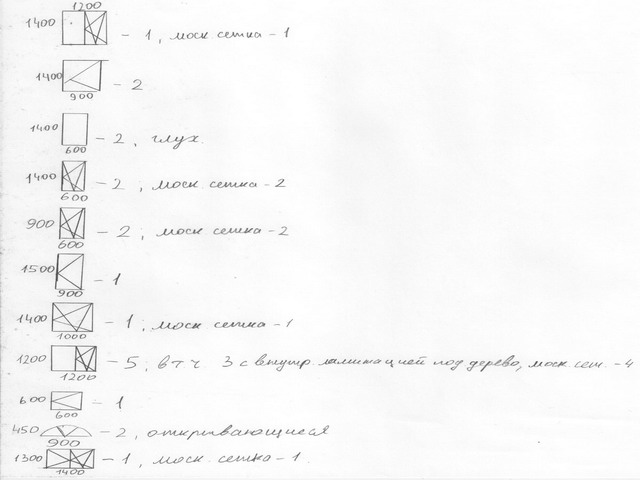 1200
1400 - 1, моск. сетка - 1
1400 - 2
900
1400 - 2, глух.
600
1400 - 2, моск. сетка - 2
600
900 - 2, моск сетка - 2
600
1500 - 1
900
1400 - 1, моск сетка - 1
1000
1200 - 5, в т.ч. 3 с внутр. ламинацией под дерево, моск. сет. - 4
1200
600 - 1
600
450 - 2, открывающиеся
900
1300 - 1, моск. сетка - 1.
1400